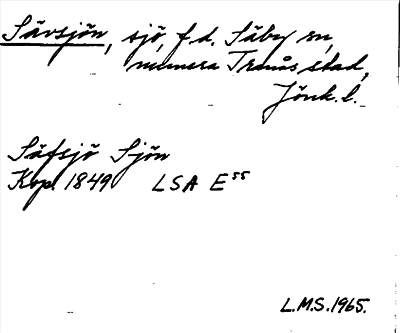 Sävsjön, sjö, f.d. Säby sn,
numera Tranås stad,
Jönk. l.
Säfsjö Sjön
Kop. 1849 LSA E⁵⁵
L.M.S. 1965.